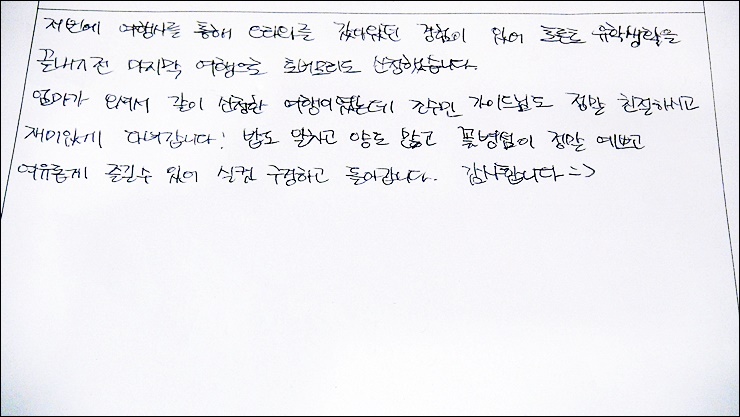 저번에 여행사를 통해 오타와를 갔다왔던 경험이 있어 토론토 유학생활을
끝내기전 마지막 여행으로 토버모리도 신청했습니다.
엄마가 오셔서 같이 신청한 여행이였는데 가이드님도 정말 친절하시고
재미있게 다녀갑니다! 밥도 맛있고 양도 많고 꽃병섬이 정말 예쁘고
여유롭게 즐길수 있어 실컷 구경하고 돌아갑니다. 감사합니다 =)